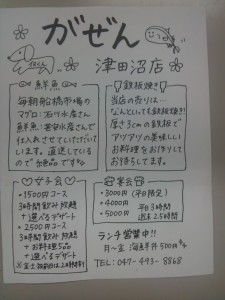 がぜん
津田沼店
鮮魚
毎朝船橋市場の
マグロ:石川水産さん
鮮魚:
仕入れさせていただいて
います。直送しているの
で絶品です
鉄板焼き
当店の売りは…
なんといっても鉄板焼き!!
厚さ3cmの鉄板で
アツアツの美味しい
お料理をお作りして
お待ちしてます。
女子会
・1500円コース
3時間飲み放題
+選べるデザート
・2500円コース
3時間飲み放題
+お料理5品
+選べるデザート
※金土祝前日は2時間制
宴会
・3000円(平日限定)
・4000円 平日3時間
・5000円 週末2.5時間
ランチ営業中!!
月~金 海鮮丼 500円
TEL:047-493-8868